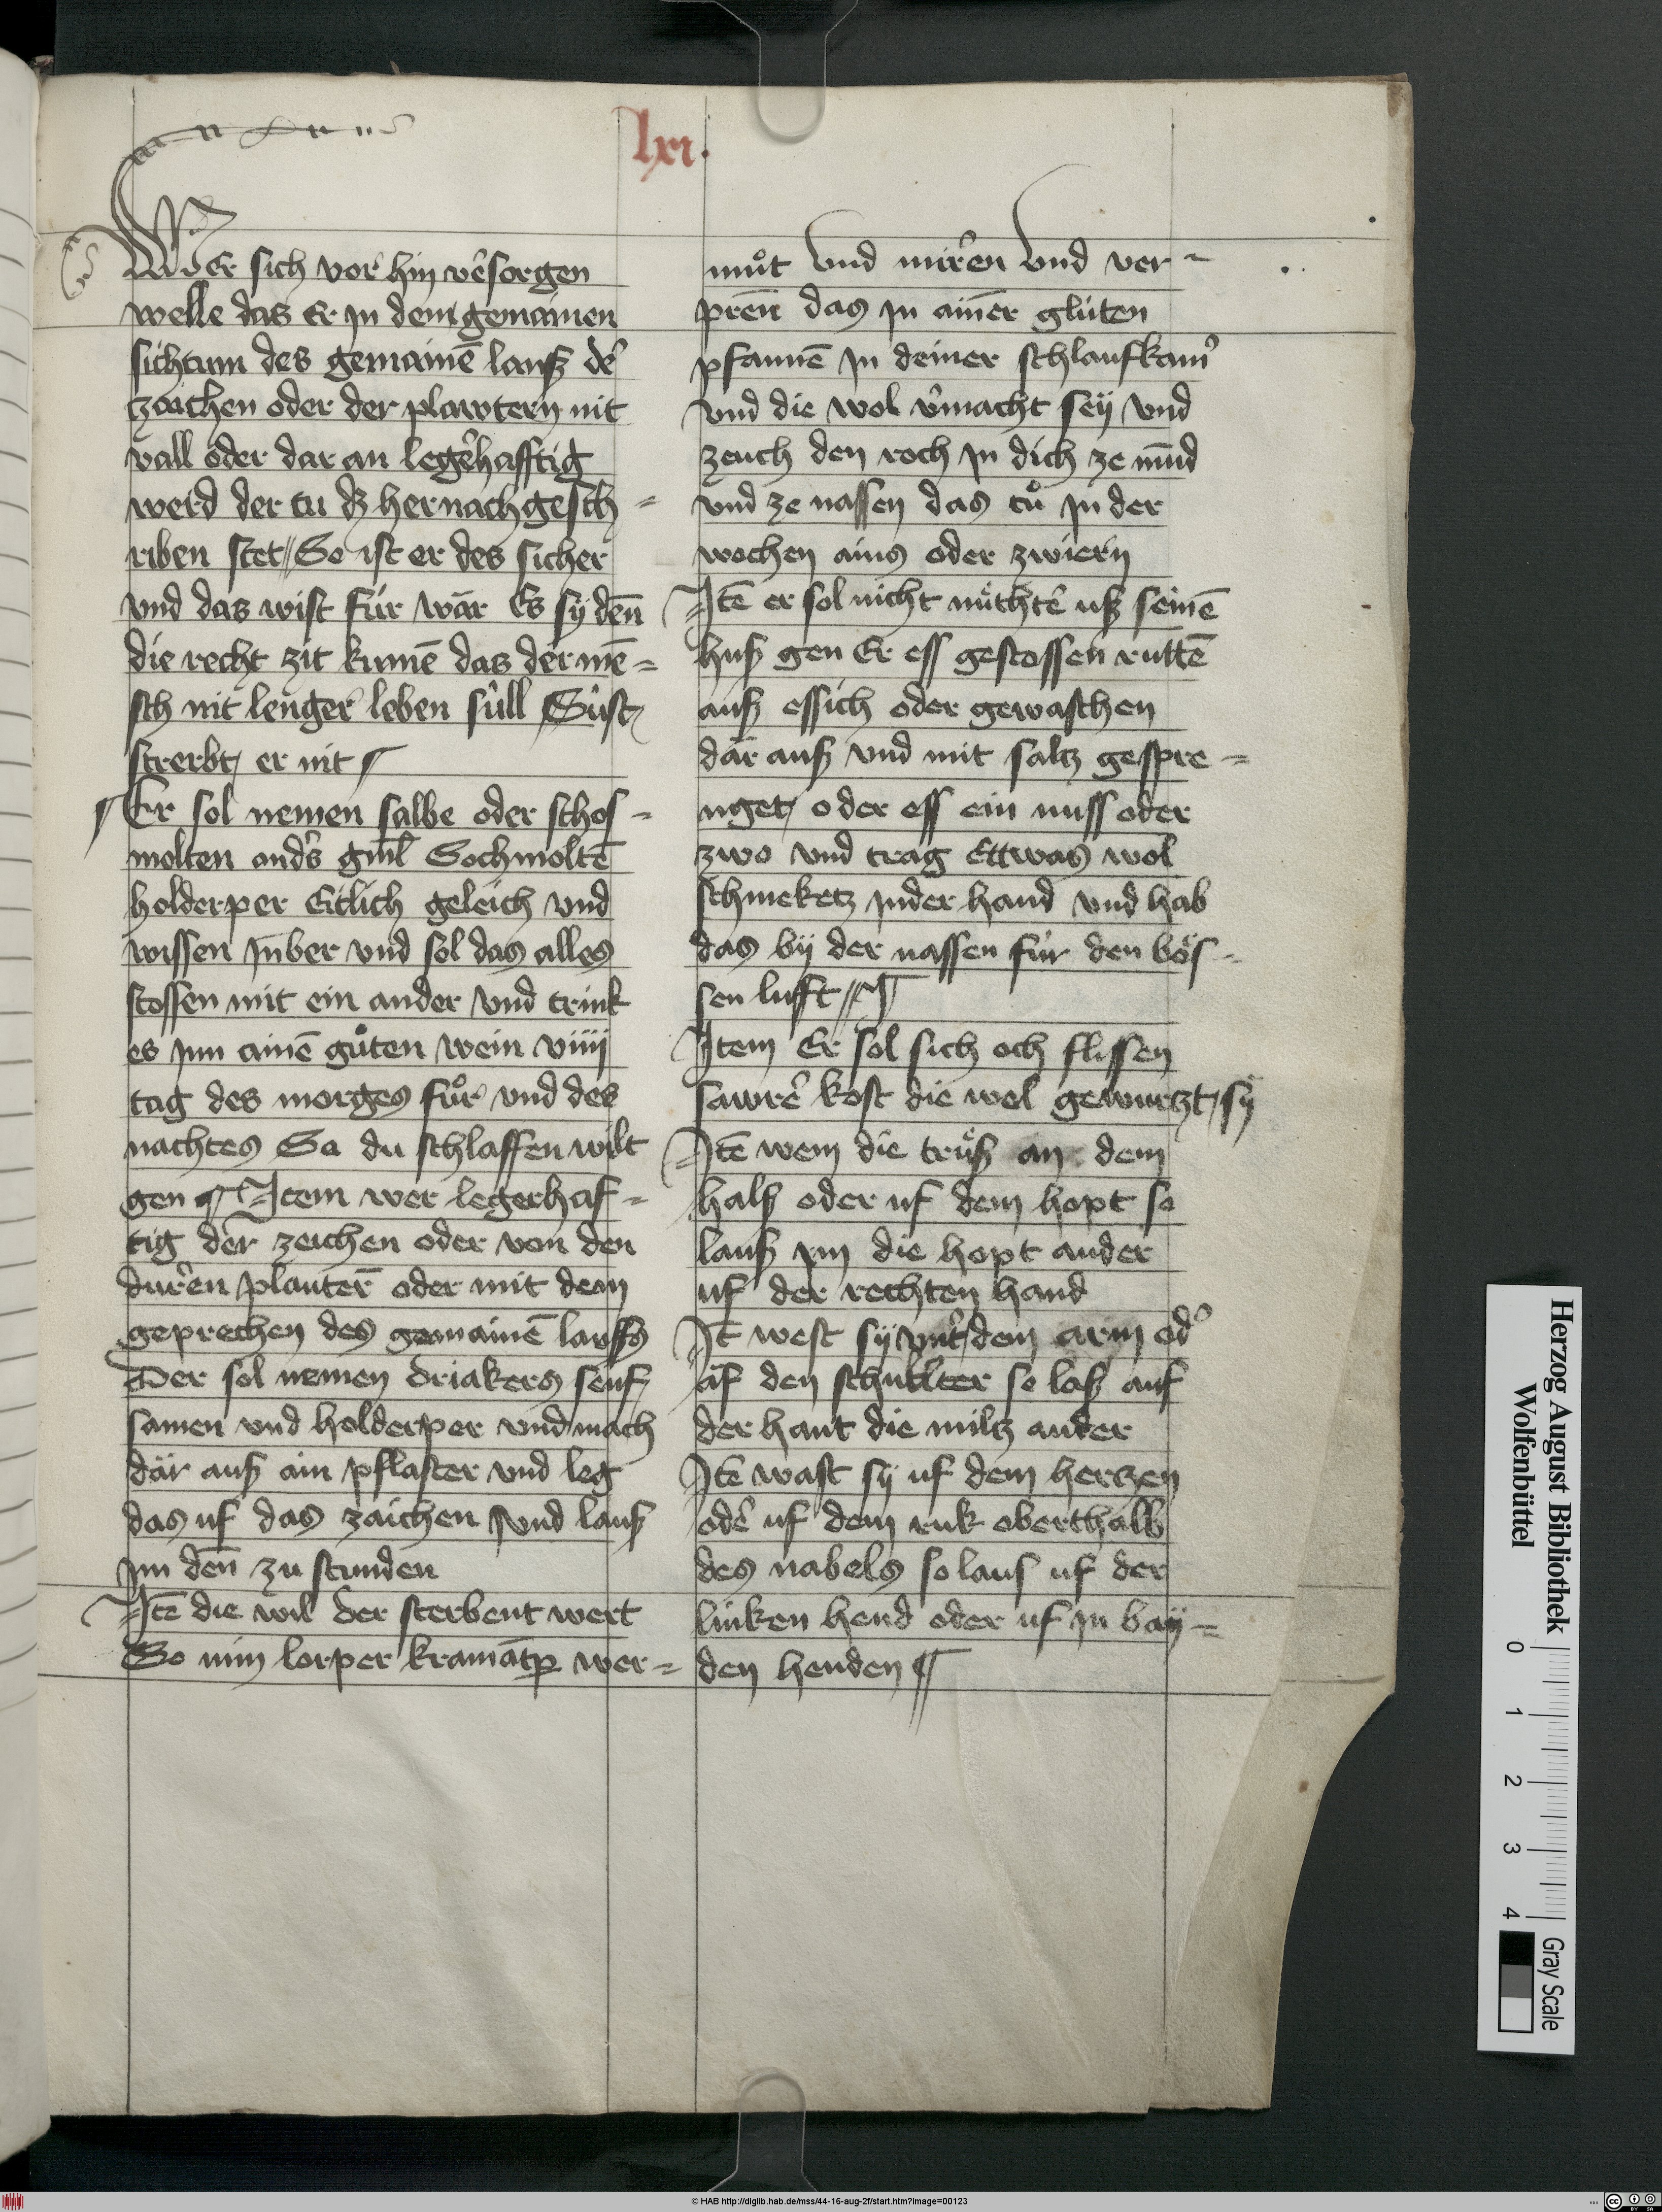 lxi.
Wer sich vor hin v̂sorgen
welle das Er in dem gemainen
sichtum des gemainē lauſʒ dê
tzaichen oder der plawtern nit
vall oder dar an legêhafftig
werd der tu dʒ hernach gesch=
riben stet // So ist er des sicher
vnd das wist für wār Es sÿ den̄
die recht zit kumē das der mē=
sch nit lenger leben sull Sust
sterbt er nit
Er sol nemen salbe oder schos=
molten andˢs Sochmoltē
holderper Etlich geleich vnd
wissen Inber vnd sol das alles
stossen mit ein ander vnd trink
es Inn ainē gůten wein viiij
tag des morges fůr vnd des
nachtes So du schlaffen wilt
gen ¶ Item wer legerhaf=
tig der zeichen oder von den
durren plauter̄ oder mit dem
geprechen des gemainē lauffs
Der sol nemen driakers senf
samen vnd holderper vnd mach
där ausʒ ain pflaster vnd leg
das uf das zaichen vnd lausʒ
im den̄ zu stunden
Itē die wil der sterbent wert
So nim lorper kramatp wer=
můt vnd mirren vnd ver=
pren̄ das in ainer glüten
pfannē In deiner schlaufkamˀ
vnd die wol v̂macht seÿ vnd
zeuch den roch in dich ze mūnd
vnd ze nassen das tů in der
wochen ains oder zwiern
Itē er sol nicht nüchtê usʒ seinē
husʒ gen Er eſſ gestossen ruttē
ausʒ essich oder gewaschen
där ausʒ vnd mit saltz gespre=
nget oder eſſ ein nuss oder
zwo vnd trag Ettwas wol
schmeketz in der hand vnd hab
das bÿ der nassen für den bös=
sen luft // ¶
Item Er sol sich och flissen
sawrê kost die wol gewurtzt sÿ
Itē wem die trüsʒ an dem
halsʒ oder uf dem hopt so
lausʒ im die hopt ander
uf der rechten hand
It̄ west sÿ vntˀ dem arm odˀ
äf den schultter so lasʒ auf
der hant die miltz ander
Itē wast sÿ uf dem hertzen
odê uf dem ruk oberthalb
des nabels so laus uf der
linken hend oder uf in baÿ=
den henden ¶
Herzog August Bibliothek
Wolfenbüttel
0 1 2 3 4
Gray Scale
© HAB http://diglib.hab.de/mss/44-16-aug-2f/start.htm?image=00123